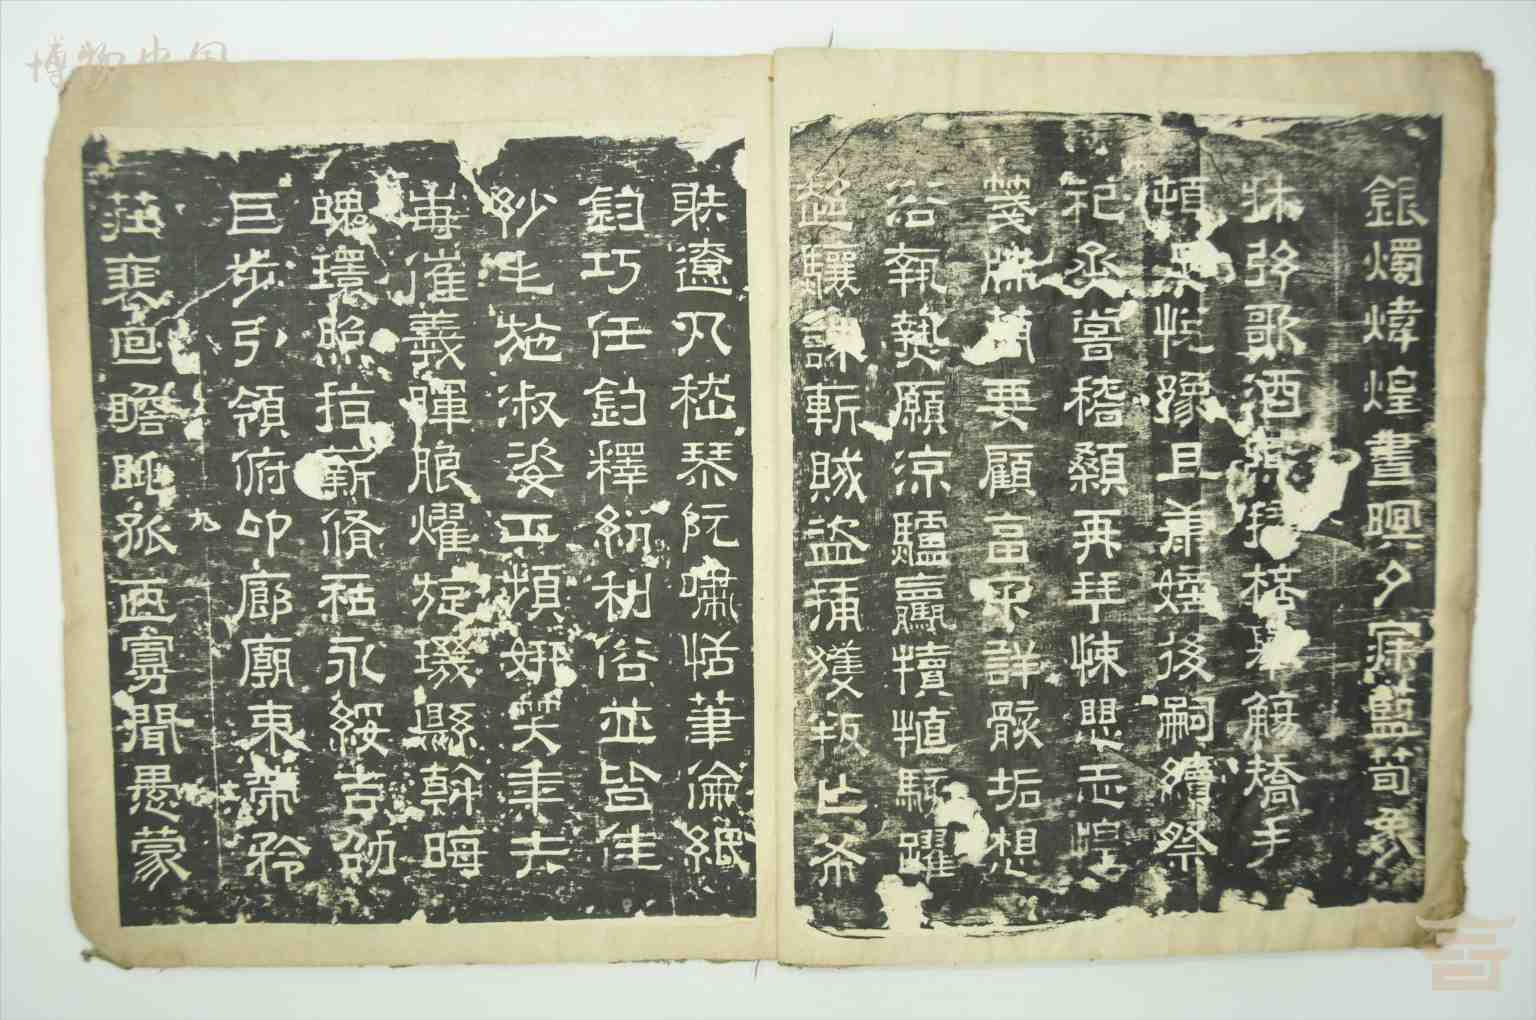 銀燭煒煌晝暝夕寐藍筍象
牀弦歌酒讌接桮舉觴矯手
頓足悅豫且康嫡後嗣續祭
祀烝嘗稽顙再拜悚懼恐惶
箋牒簡要顧畣審詳骸垢想
浴執熱願涼驢驘犢犆駭躍
超驤誅斬賊盜捕獲叛亡布
射遼丸嵇琴阮嘯恬筆倫紙
鈞巧任釣釋紛利俗並皆佳
妙毛施淑姿工顰妍笑年矢
每催羲暉朗耀旋璣懸斡晦
魄環照指薪脩祜永綏吉劭
巨步引領俯仰廊廟束帶矜
九
莊裵回瞻眺孤陋寡聞愚蒙